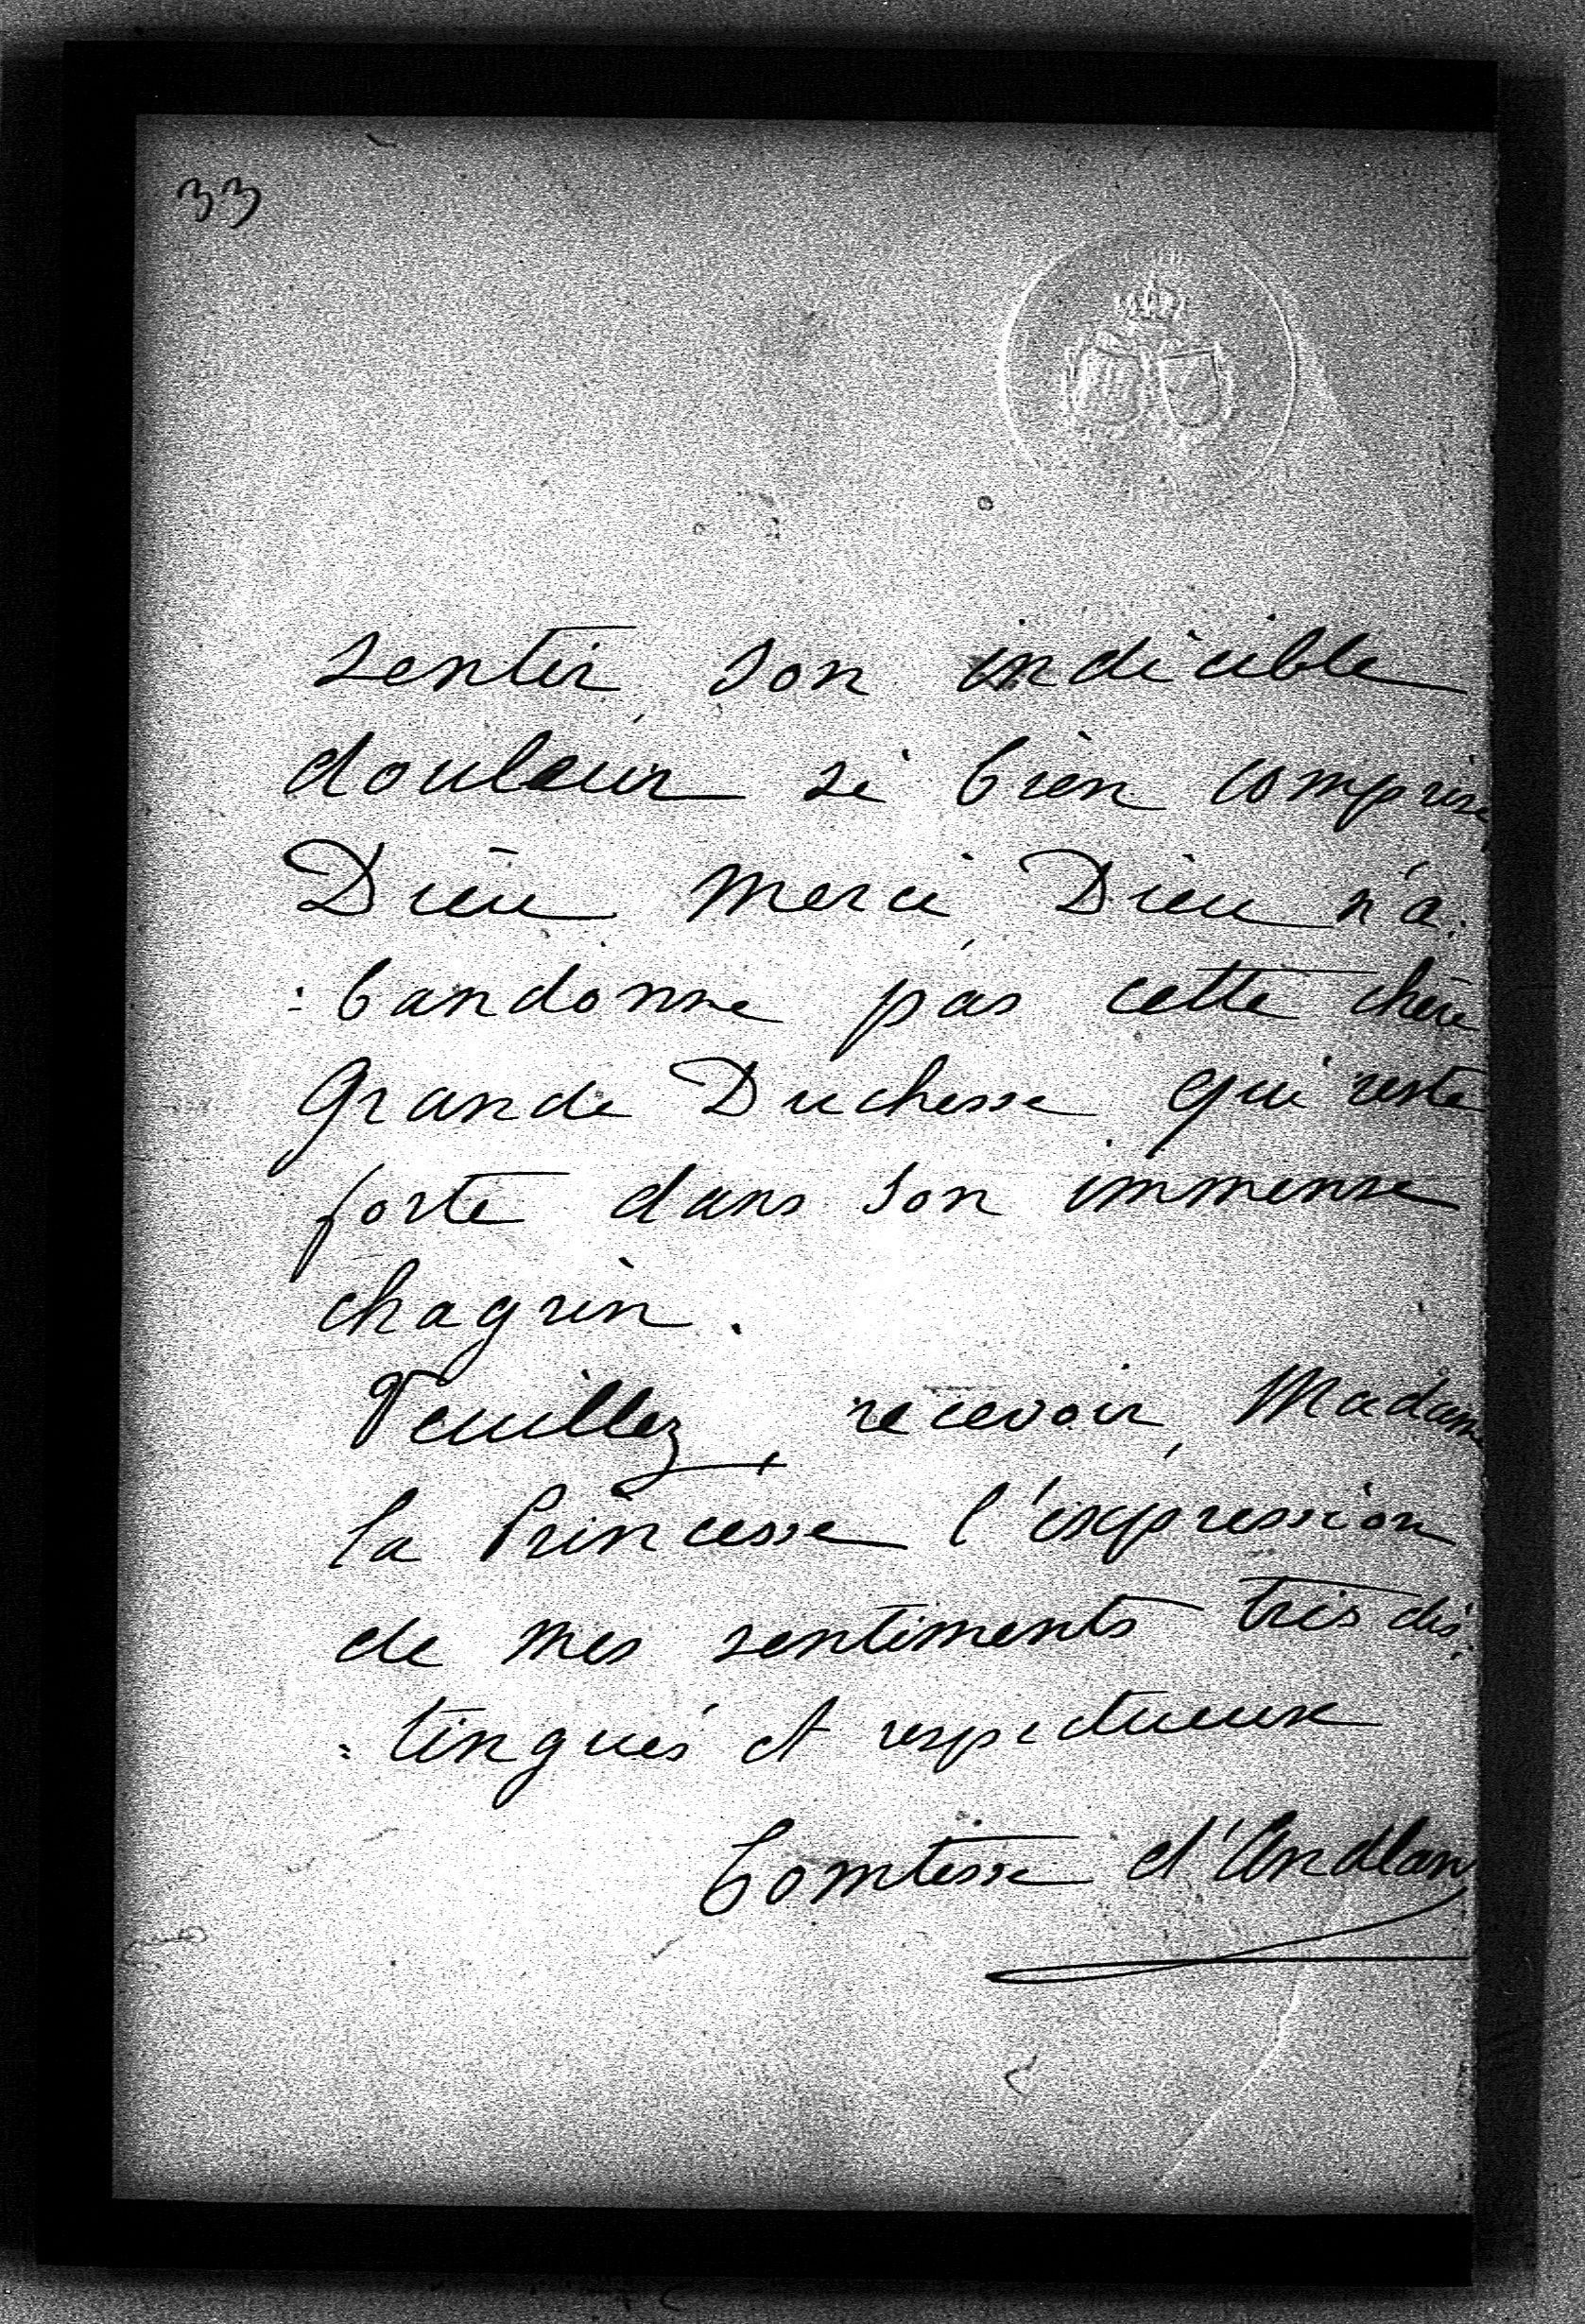 33
sentir son indicible
douleur si bien comprise,
Dieu merci, Dieu n'a:
:bandonne pas cette chère
Grande Duchesse qui reste
forte dans son immense
chagrin.
Veuillez, recevoir, Madame
la Princesse l'expression
de mes sentiments très dis:
:tingués et respectueux
Comtesse d'Andlau